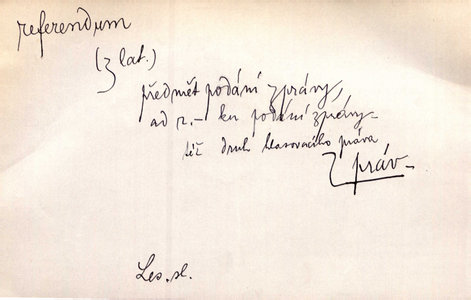 referendum
(z lat.)
předmět podání zprávy,
ad r. – ku podání zprávy –
též druh hlasovacího práva
práv –
Les. sl.